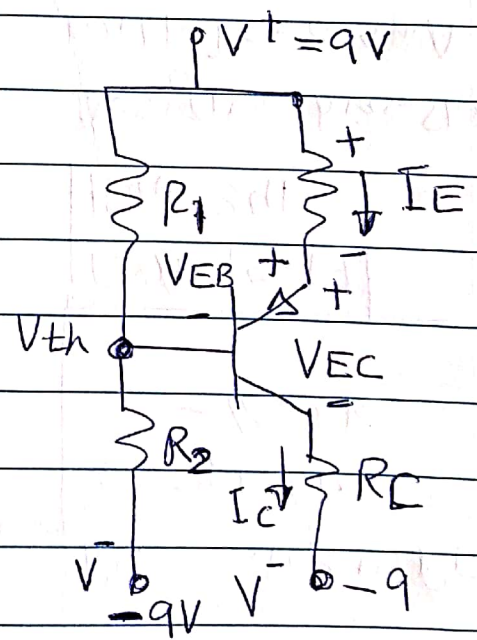 V⁺ = 9V
+
R1
IE
-
VEB + +
-
Vth
VEC
-
R2
IC
RC
V⁻
V⁻
-9
-9V